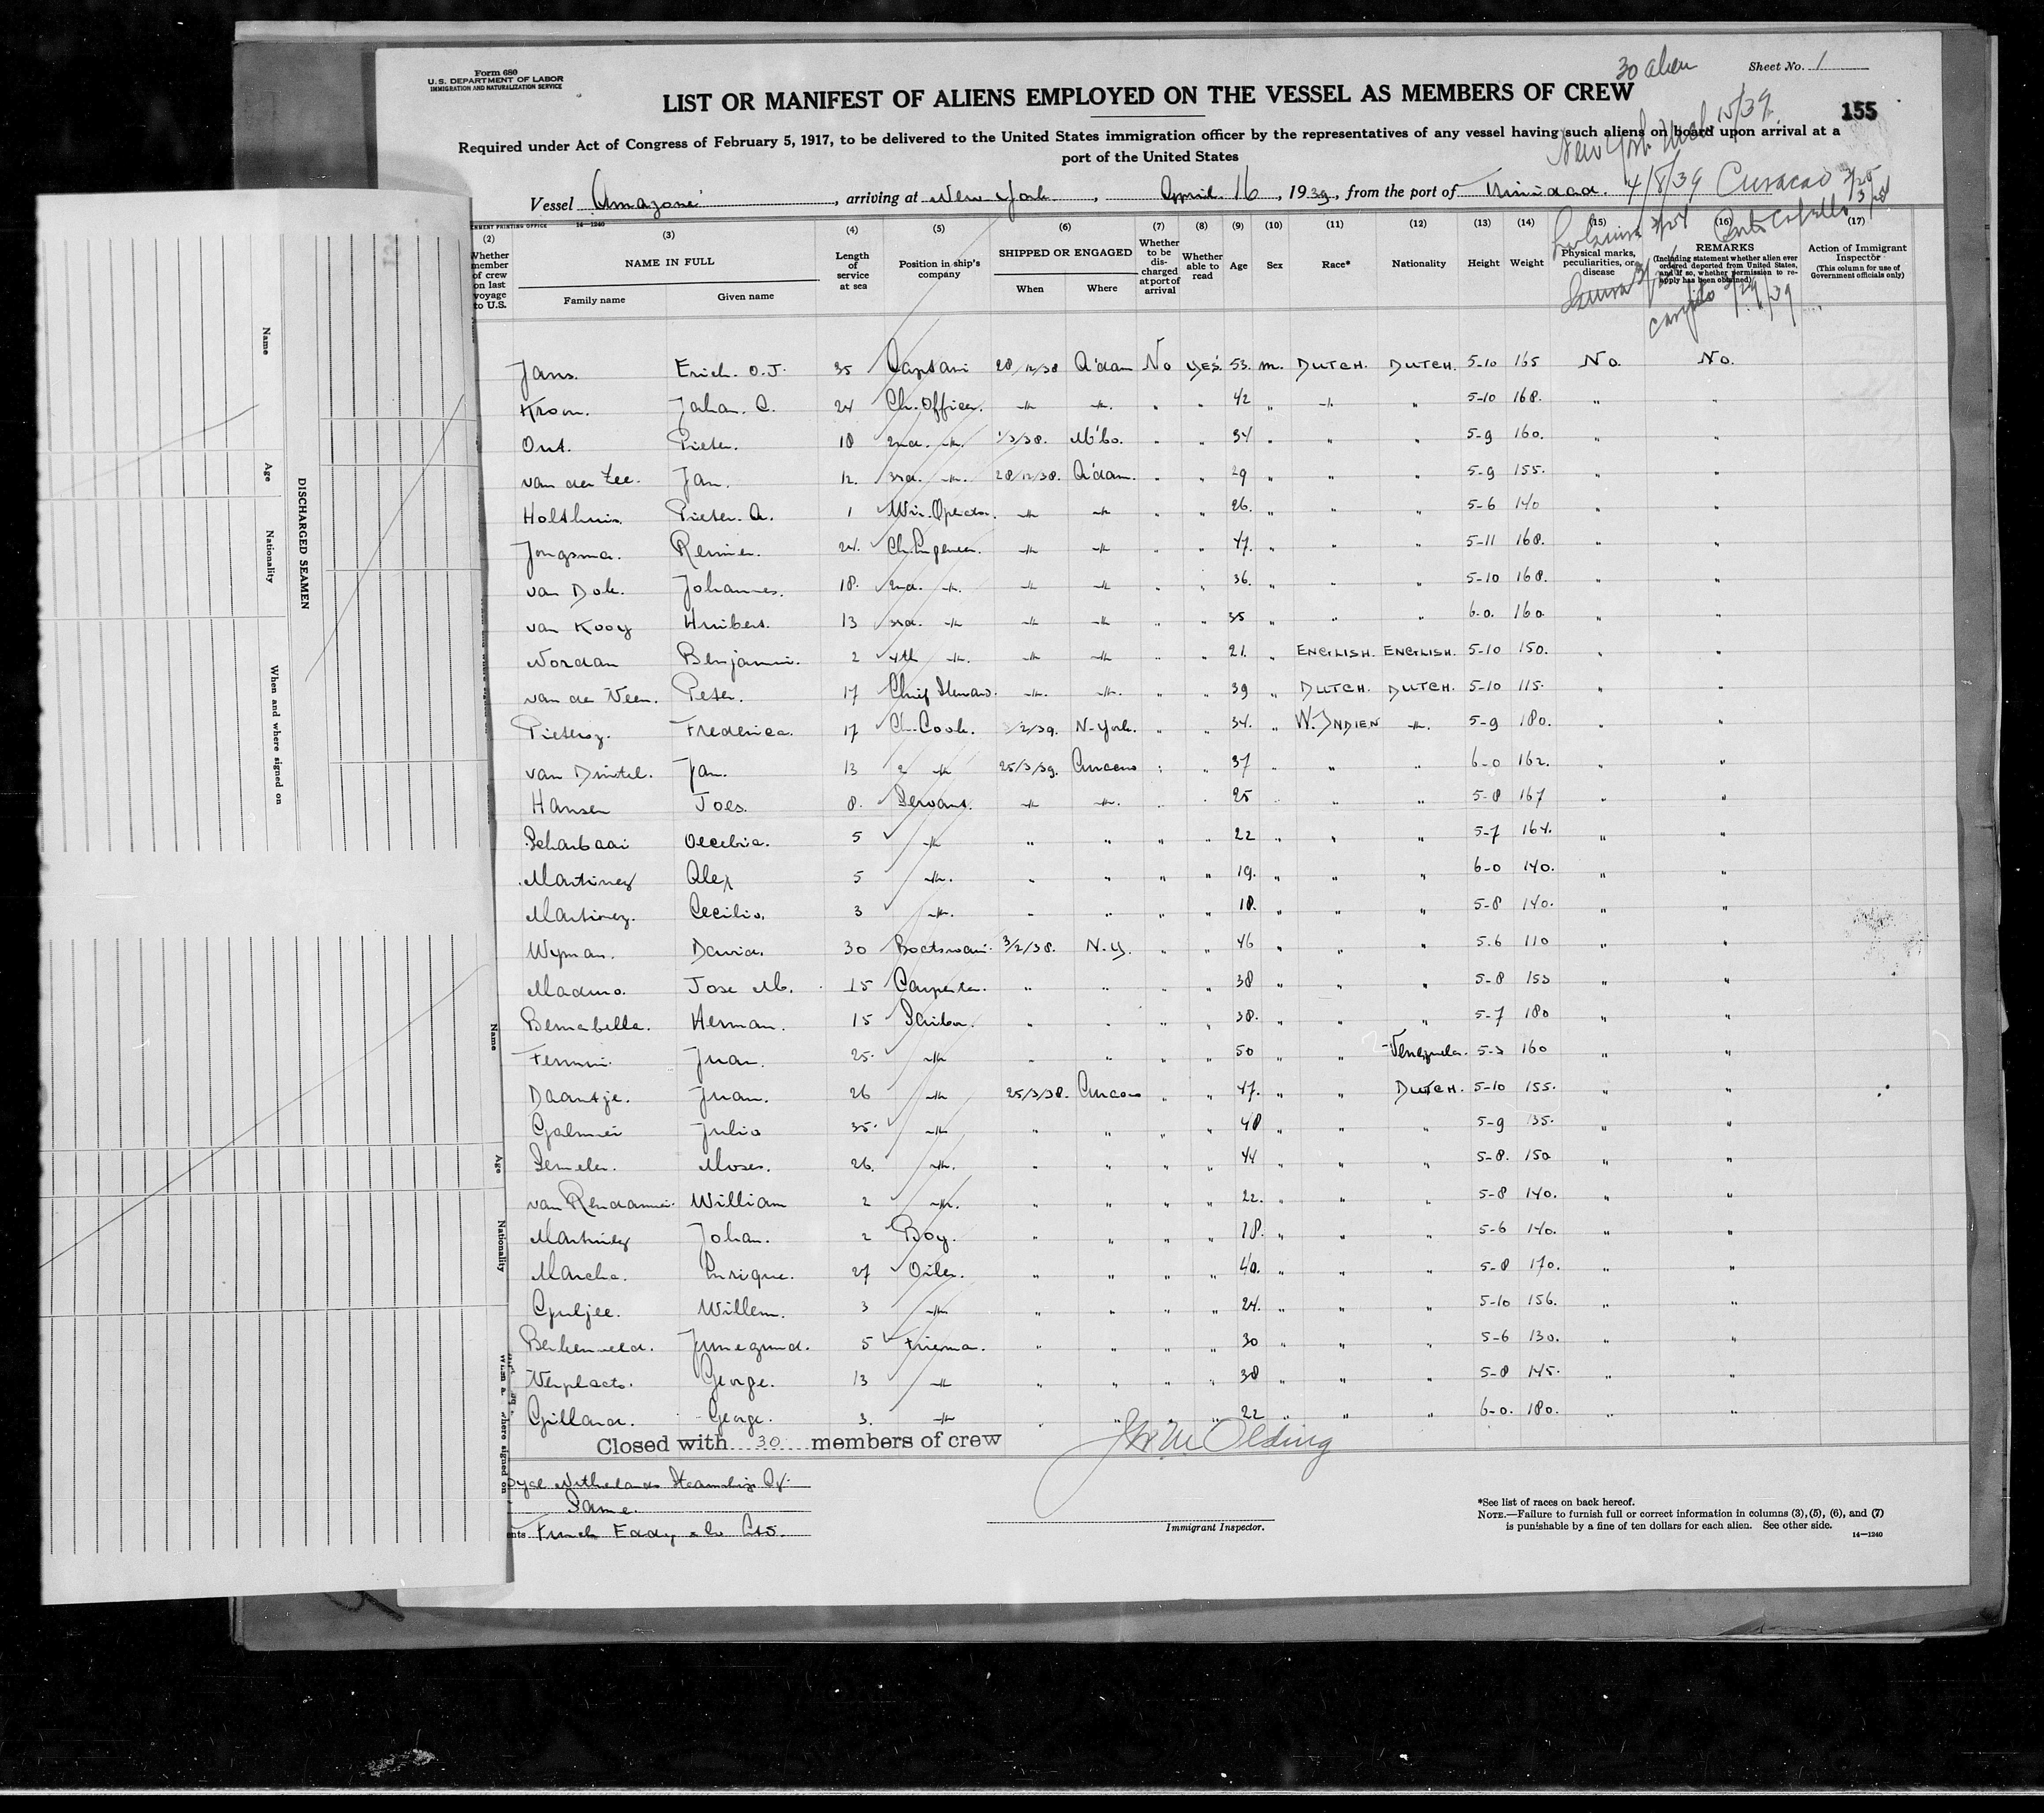 Form 680
U.S. DEPARTMENT OF LABOR
IMMIGRATION AND NATURALIZATION SERVICE
30 alien
Sheet No. 1
LIST OR MANIFEST OF ALIENS EMPLOYED ON THE VESSEL AS MEMBERS OF CREW
155
Required under Act of Congress of February 5, 1917, to be delivered to the United States immigration officer by the representatives of any vessel having such aliens on board upon arrival at a
port of the United States
New York Mch 15/39
Vessel Amazone, arriving at New-York, April 16, 1939, from the port of Trinidad. 4/8/39 Curacao 3/25
Porto Cabello
14—1240
(2) (3) (4) (5) (6) (7) (8) (9) (10) (11) (12) (13) (14) (15) (16) (17)
Whether member of crew on last voyage to U.S.
NAME IN FULL
Family name Given name
Length of service at sea
Position in ship's company
SHIPPED OR ENGAGED
When Where
Whether to be discharged at port of arrival
Whether able to read
Age Sex Race* Nationality Height Weight
Physical marks, peculiarities, or disease
REMARKS
(Including statement whether alien ever ordered deported from United States, and if so, whether permission to re-apply has been obtained)
Action of Immigrant Inspector
(This column for use of Government officials only)
Jans. Erich. O.J. 35 Captain 28/12/38 A'dam No yes. 53. m. DUTCH. DUTCH. 5-10 165 No. No.
Kroon. Johan. C. 24 Ch. Officer. -"- -"- " " 42 " -"- " 5-10 168. " "
Out. Pieter. 18 2nd. -"- 1/3/38. M'bo. " " 34 " " " 5-9 160. " "
van der Zee. Jan. 12. 3rd. -"- 28/12/38. A'dam. " " 29 " " " 5-9 155. " "
Holthuis. Pieter. A. 1 Wir. Operator. -"- -"- " " 26. " " " 5-6 140 " "
Jongsma. Reinier. 24. Ch. Engineer. -"- -"- " " 47. " " " 5-11 168. " "
van Dok. Johannes. 18. 2nd. -"- -"- -"- " " 36. " " " 5-10 168. " "
van Kooy Huibert. 13 3rd. -"- -"- -"- " " 35 " " " 6-0. 160. " "
Nordan Benjamin. 2 4th -"- -"- -"- " " 21. " ENGLISH. ENGLISH. 5-10 150. " "
van der Veen. Peter. 17 Chief Steward. -"- -"- " " 39 " DUTCH. DUTCH. 5-10 115. " "
Pietersz. Frederica. 17 Ch. Cook. 3/2/39. N-York. " " 34. " W. INDIEN -"- 5-9 180. " "
van Dintel. Jan. 13 2 -"- 25/3/39. Curacao " " 37 " " " 6-0 162. " "
Hansen Joes. 8. Servant. -"- -"- " " 25 " " " 5-8 167 " "
Scharbaai 5 -"- " " " " 22 " " " 5-7 164. " "
Martinez Alex 5 -"- " " " " 19. " " " 6-0 140. " "
Martinez. Cecilio. 3 -"- " " " " 18. " " " 5-8 140. " "
Wyman. David. 30 Boatswain. 3/2/38. N.Y. " " 46 " " " 5.6 110 " "
Maduro. Jose M. 15 Carpenter. " " " " 38 " " " 5-8 153 " "
Bernabella. Herman. 15 Sailor. " " " " 38. " " " 5-7 180 " "
Fermin. Juan. 25. -"- " " " " 50 " " Venezuela. 5-3 160 " "
Daantje. Juan. 26 -"- 25/3/38. Curacao " " 47. " " DUTCH. 5-10 155. " "
Julio 35. -"- " " " " 48 " " " 5-9 135. " "
Semeler. Moses. 26. -"- " " " " 44 " " " 5-8. 150 " "
van William 2 -"- " " " " 22. " " " 5-8 140. " "
Martinez Johan. 2 Boy. " " " " 18. " " " 5-6 140. " "
Marcha. Enrique. 27 Oiler. " " " " 40. " " " 5-8 170. " "
Willem. 3 -"- " " " " 24. " " " 5-10 156. " "
Berkenveld. 5 Firema. " " " " 30 " " " 5-6 130. " "
George. 13 -"- " " " " 38 " " " 5-8 145. " "
Grilland. George. 3. -"- " " " " 22 " " " 6-0. 180. " "
Closed with 30 members of crew
Netherlands Steamship Cy.
Same.
Funch Eday & Co
Immigrant Inspector.
*See list of races on back hereof.
NOTE.—Failure to furnish full or correct information in columns (3), (5), (6), and (7)
is punishable by a fine of ten dollars for each alien. See other side.
14—1240
DISCHARGED SEAMEN
Name Age Nationality When and where signed on
Name Age Nationality where signed on